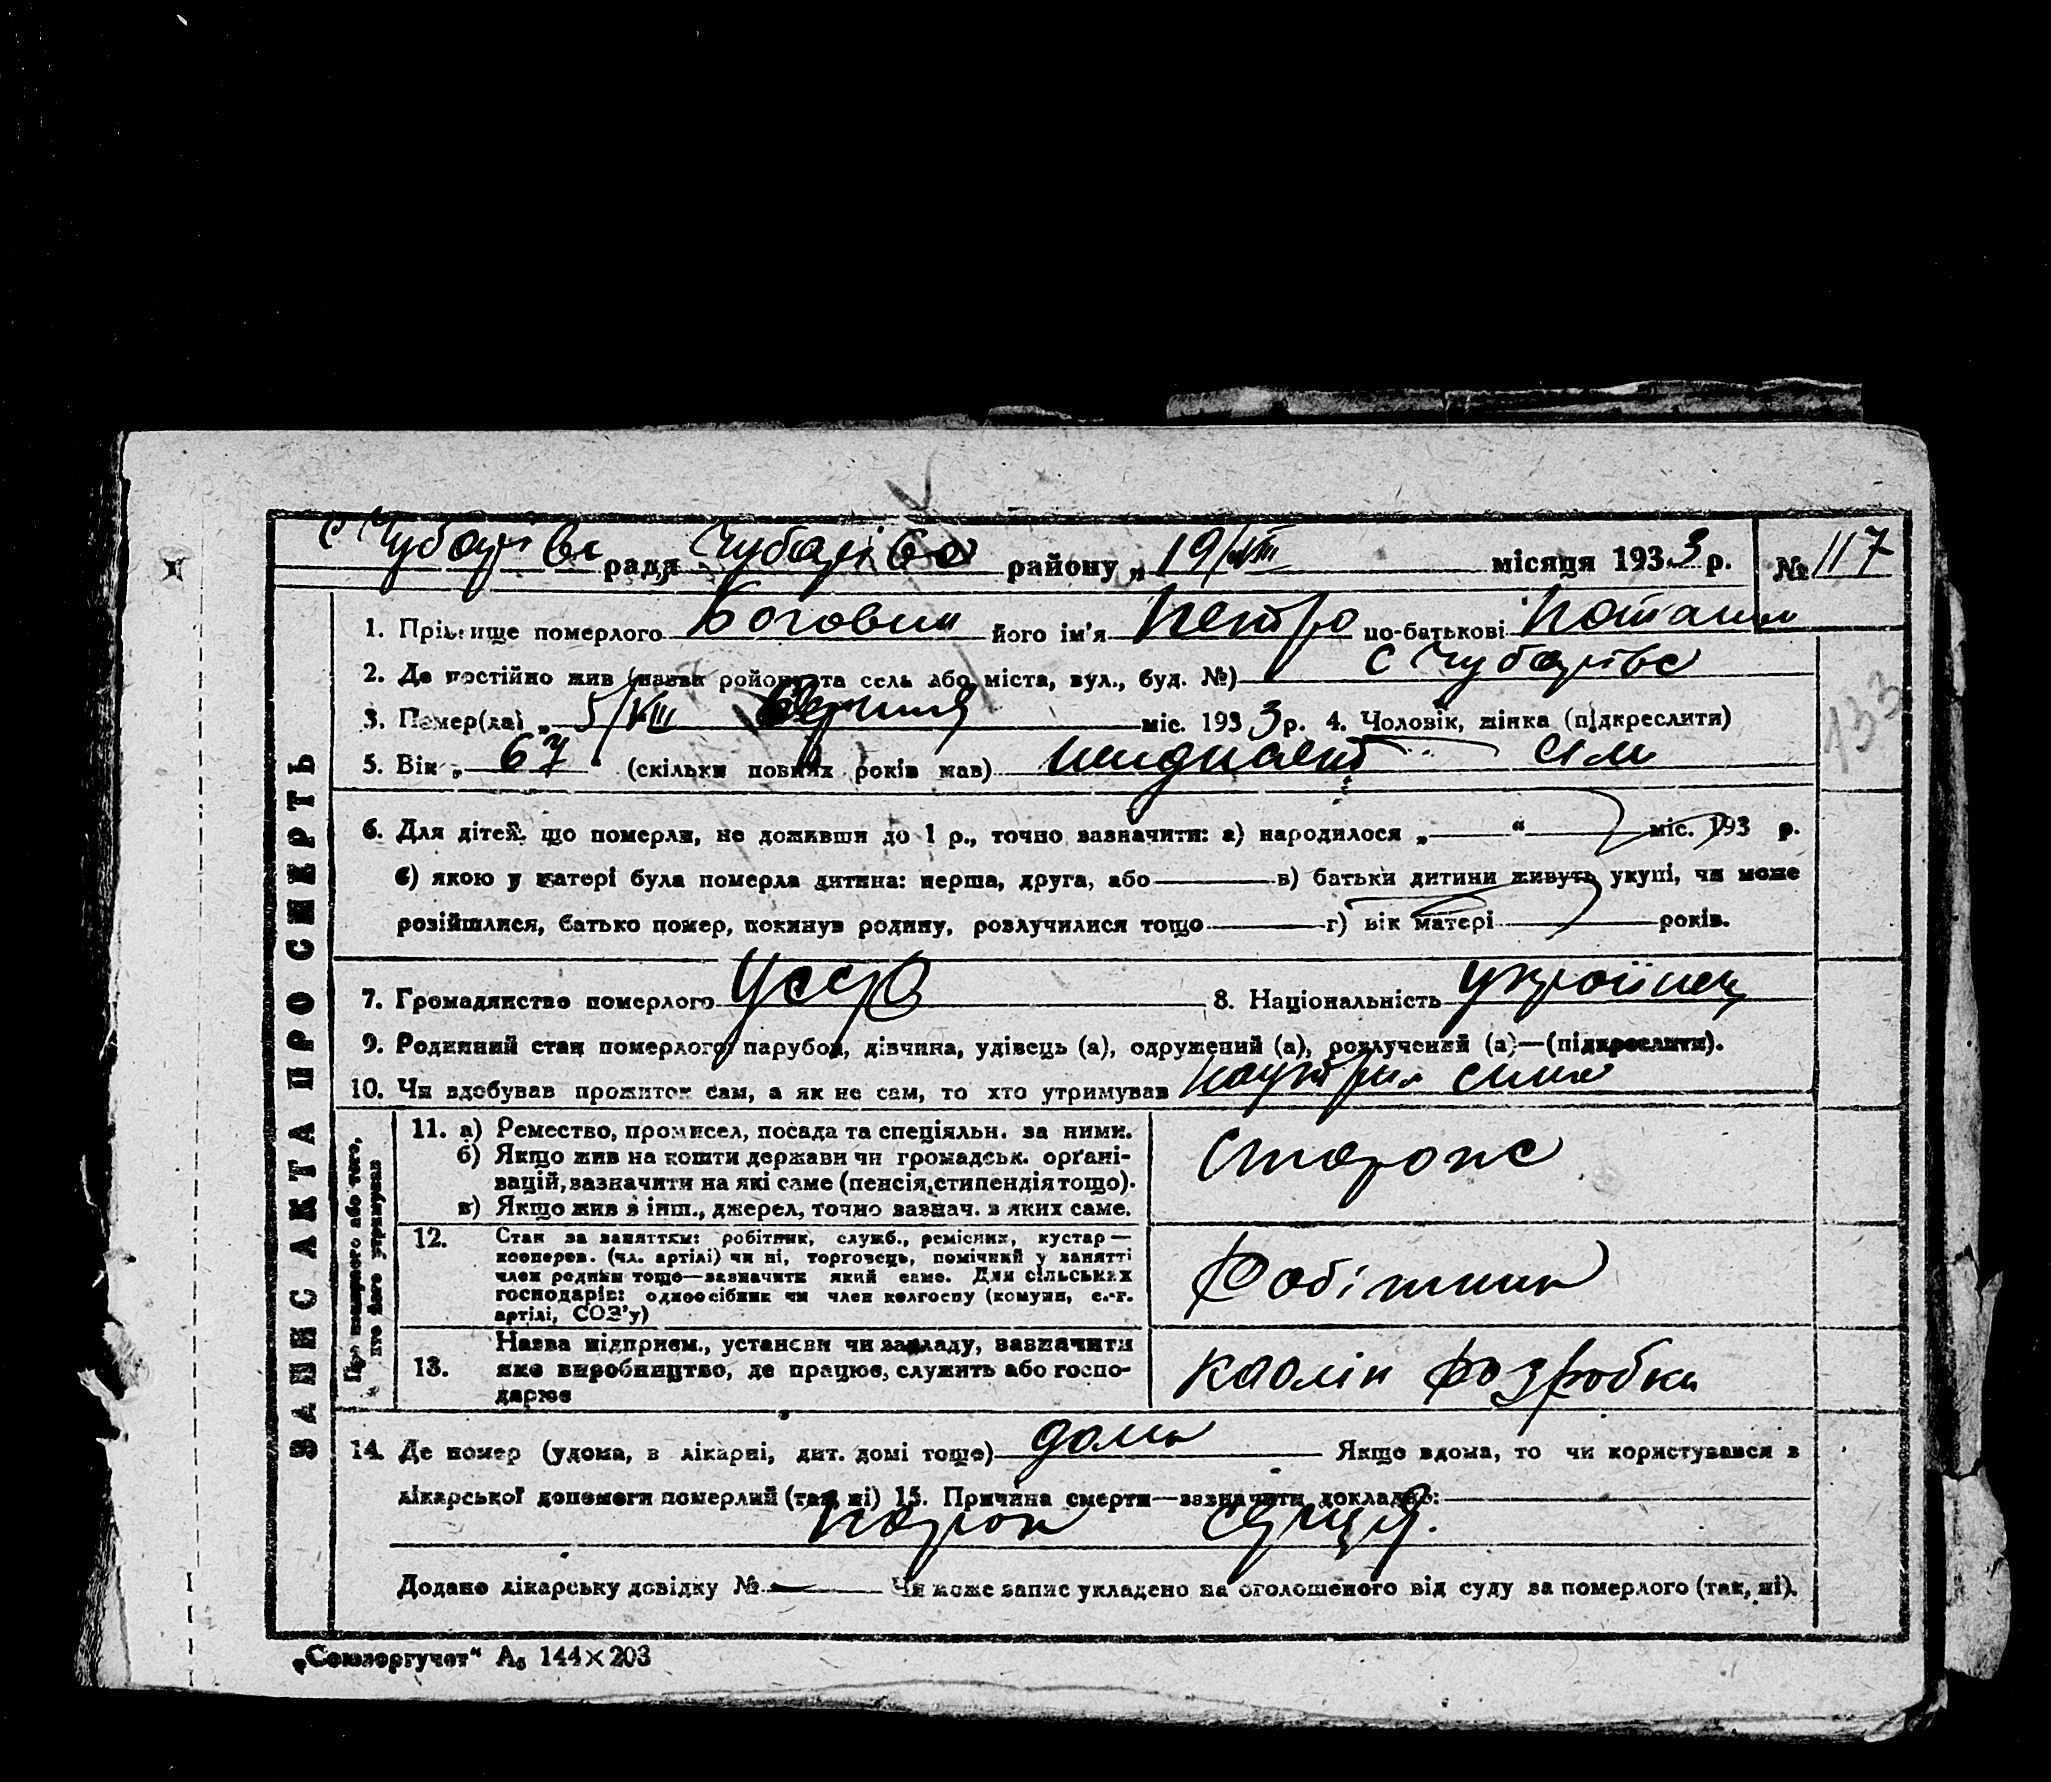 с Чубарівс рада Чубарівс району „19/VIII місяця 1933 р. № 117
1. Прізвище померлого Боговик його ім'я Петро по-батькові Потапи
2. Де постійно жив (назва району та села або міста, вул., буд. №) с Чубарівс
3. Помер(ла) „5/VIII Серпня міс. 1933 р. 4. Чоловік, жінка (підкреслити)
5. Вік „67“ (скільки повних років мав)
6. Для дітей, що померли, не доживши до 1 р., точно зазначити: а) народилося „ “ міс. 193 р.
б) якою у матері була померла дитина: перша, друга, або в) батьки дитини живуть укупі, чи може
розійшлися, батько помер, покинув родину, розлучилися тощо г) вік матері років.
7. Громадянство померлого УССР 8. Національність українец
9. Родинний стан померлого: парубок, дівчина, удівець (а), одружений (а), розлучений (а)—(підкреслити).
10. Чи здобував прожиток сам, а як не сам, то хто утримував сина
ЗАПИС АКТА ПРО СМЕРТЬ
Про померлого або того, хто його утримував
11. а) Ремество, промисел, посада та спеціяльн. за ними.
б) Якщо жив на кошти держави чи громадськ. орґані-
зацій, зазначити на які саме (пенсія, стипендія тощо).
в) Якщо жив з інш., джерел, точно зазнач. з яких саме.
Сторож
12. Стан за заняттям: робітник, служб., ремісник, кустар—
кооперов. (чл. артілі) чи ні, торговець, помічний у занятті
член родини тощо—зазначити який саме. Для сільських
господарів: одноосібник чи член колгоспу (комуни, с.-г.
артілі, СОЗ'у)
Робітник
13. Назва підприєм., установи чи закладу, зазначити
яке виробництво, де працює, служить або госпо-
дарює
каолін розробки
14. Де помер (удома, в лікарні, дит. домі тощо) дома Якщо вдома, то чи користувався з
лікарської допомоги померлий (так, ні) 15. Причина смерти—зазначити докладно:
Порок серця.
Додано лікарську довідку № — Чи може запис укладено на оголошеного від суду за померлого (так, ні).
„Союзоргучет“ А₅ 144×203
133